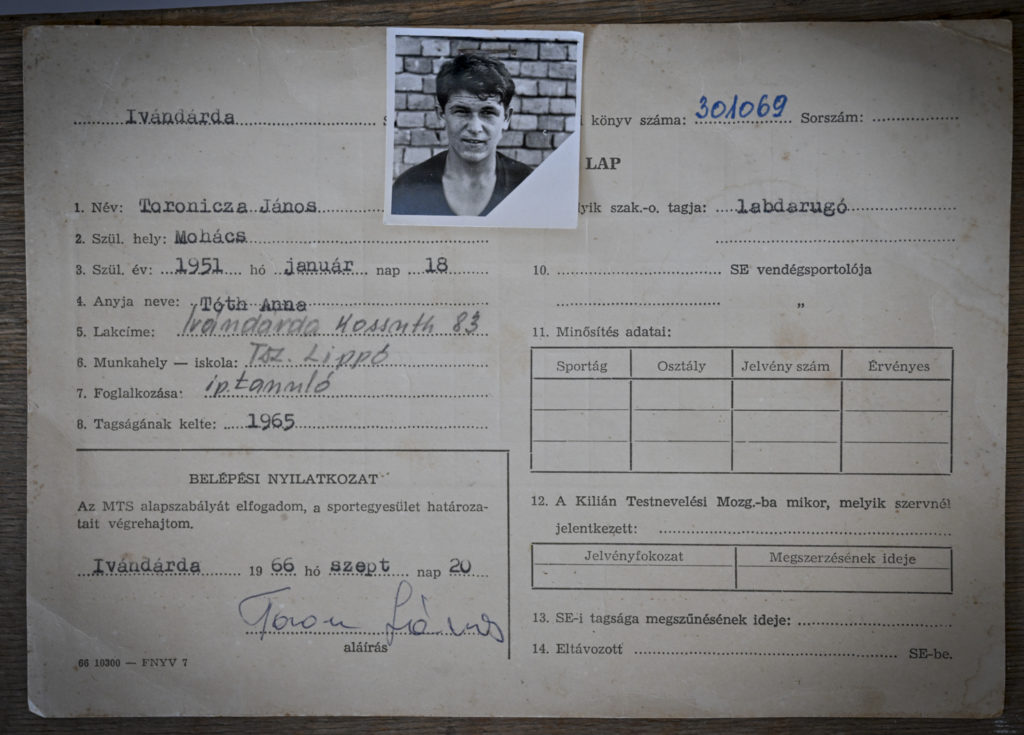 Ivándárda
könyv száma: 301069 Sorszám:
LAP
1. Név: Toronicza János
szak.-o. tagja: labdarugó
2. Szül. hely: Mohács
3. Szül. év: 1951 hó január nap 18
10. SE vendégsportolója
4. Anyja neve: Tóth Anna
"
5. Lakcíme: Ivándárda Kossuth 83
11. Minősítés adatai:
6. Munkahely — iskola: Tsz. Lippó
Sportág Osztály Jelvény szám Érvényes
7. Foglalkozása: ip.tanuló
8. Tagságának kelte: 1965
BELÉPÉSI NYILATKOZAT
Az MTS alapszabályát elfogadom, a sportegyesület határoza-
tait végrehajtom.
Ivándárda 19 66 hó szept nap 20
János
aláírás
66 10300 — FNYV 7
12. A Kilián Testnevelési Mozg.-ba mikor, melyik szervnél
jelentkezett:
Jelvényfokozat Megszerzésének ideje
13. SE-i tagsága megszűnésének ideje:
14. Eltávozott SE-be.